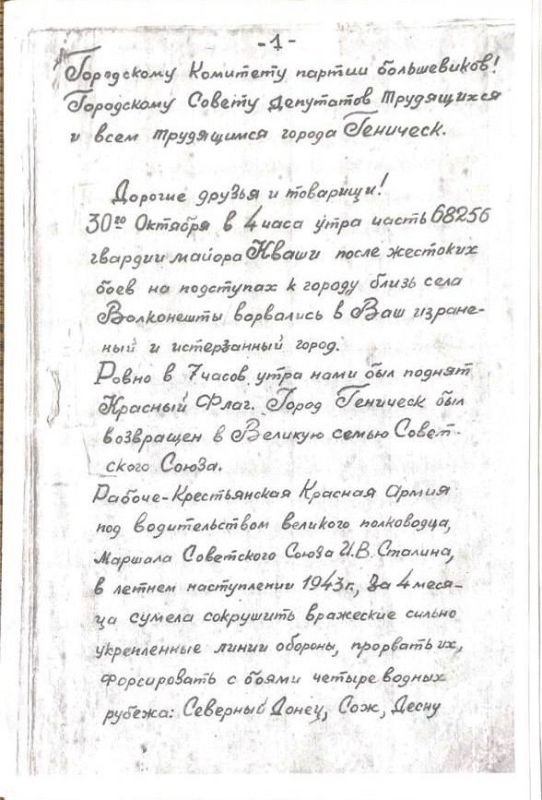 -1-
Городскому Комитету партии большевиков!
Городскому Совету Депутатов Трудящихся
и всем трудящимся города Геническ.
Дорогие друзья и товарищи!
30го Октября в 4 часа утра часть 68256
гвардии майора Кваши после жестоких
боев на подступах к городу близь села
Волконешты ворвались в Ваш изране-
ный и истерзанный город.
Ровно в 7 часов утра нами был поднят
Красный Флаг. Город Геническ был
возвращен в Великую семью Совет-
ского Союза.
Рабоче-Крестьянская Красная Армия
под водительством великого полководца,
Маршала Советского Союза И.В. Сталина,
в летнем наступлении 1943г., за 4 меся-
ца сумела сокрушить вражеские сильно
укрепленные линии обороны, прорвать их,
форсировать с боями четыре водных
рубежа: Северный Донец, Сож, Десну